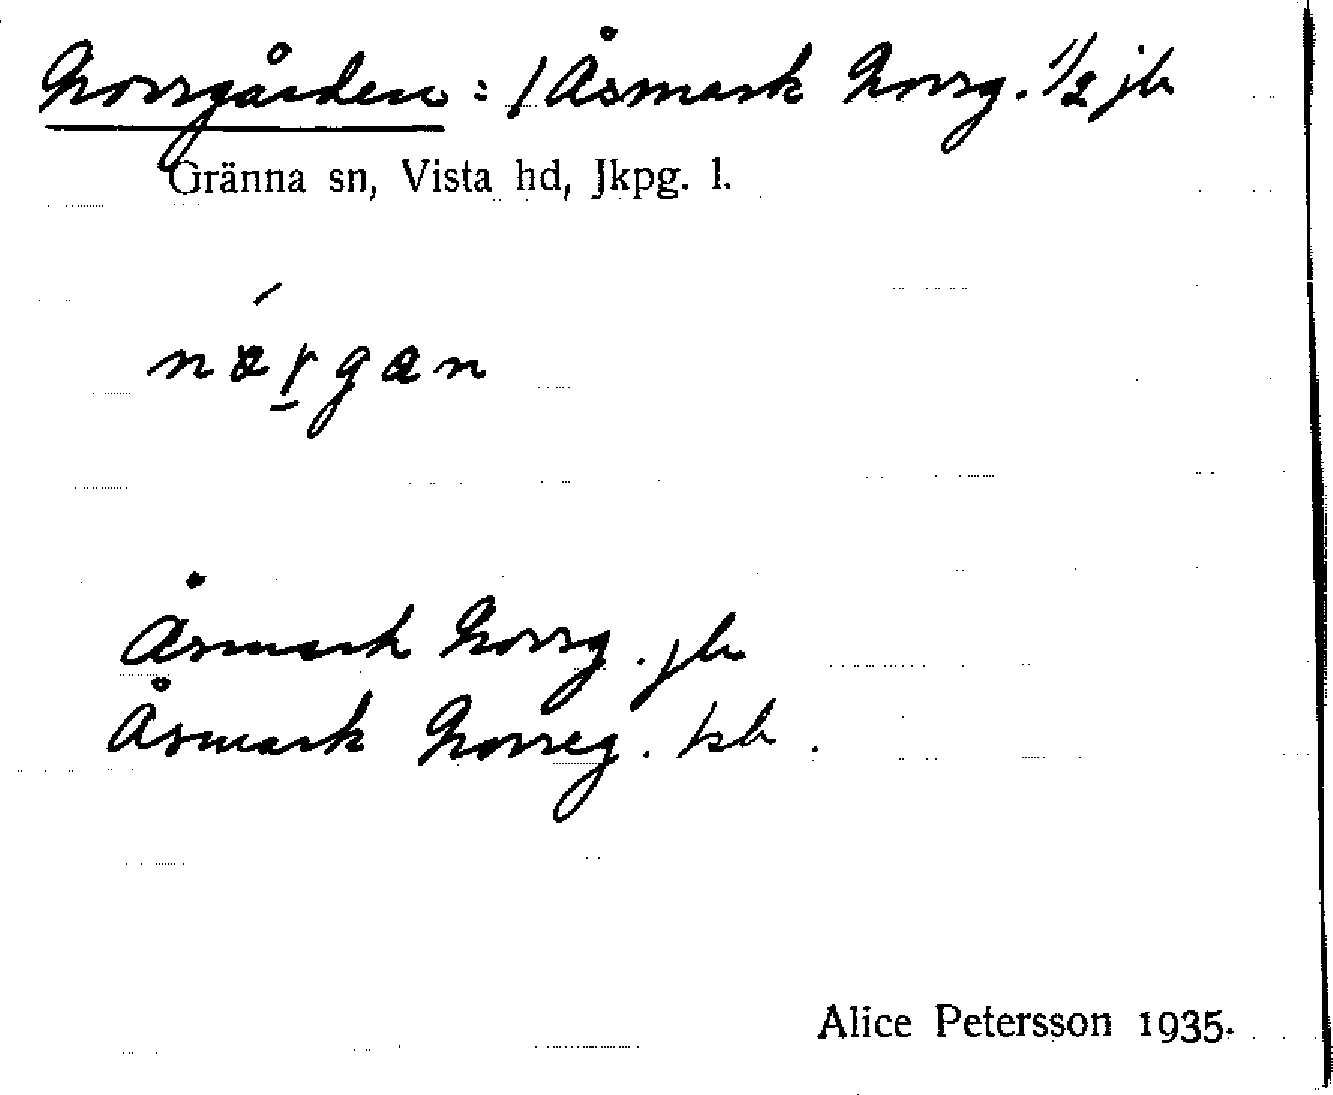 Norrgården : / Åsmark Norrg. 1/2 jb
Gränna sn, Vista hd, Jkpg. l.
Åsmark Norrg. jb
Åsmark Norreg. kb.
Alice Petersson 1935.